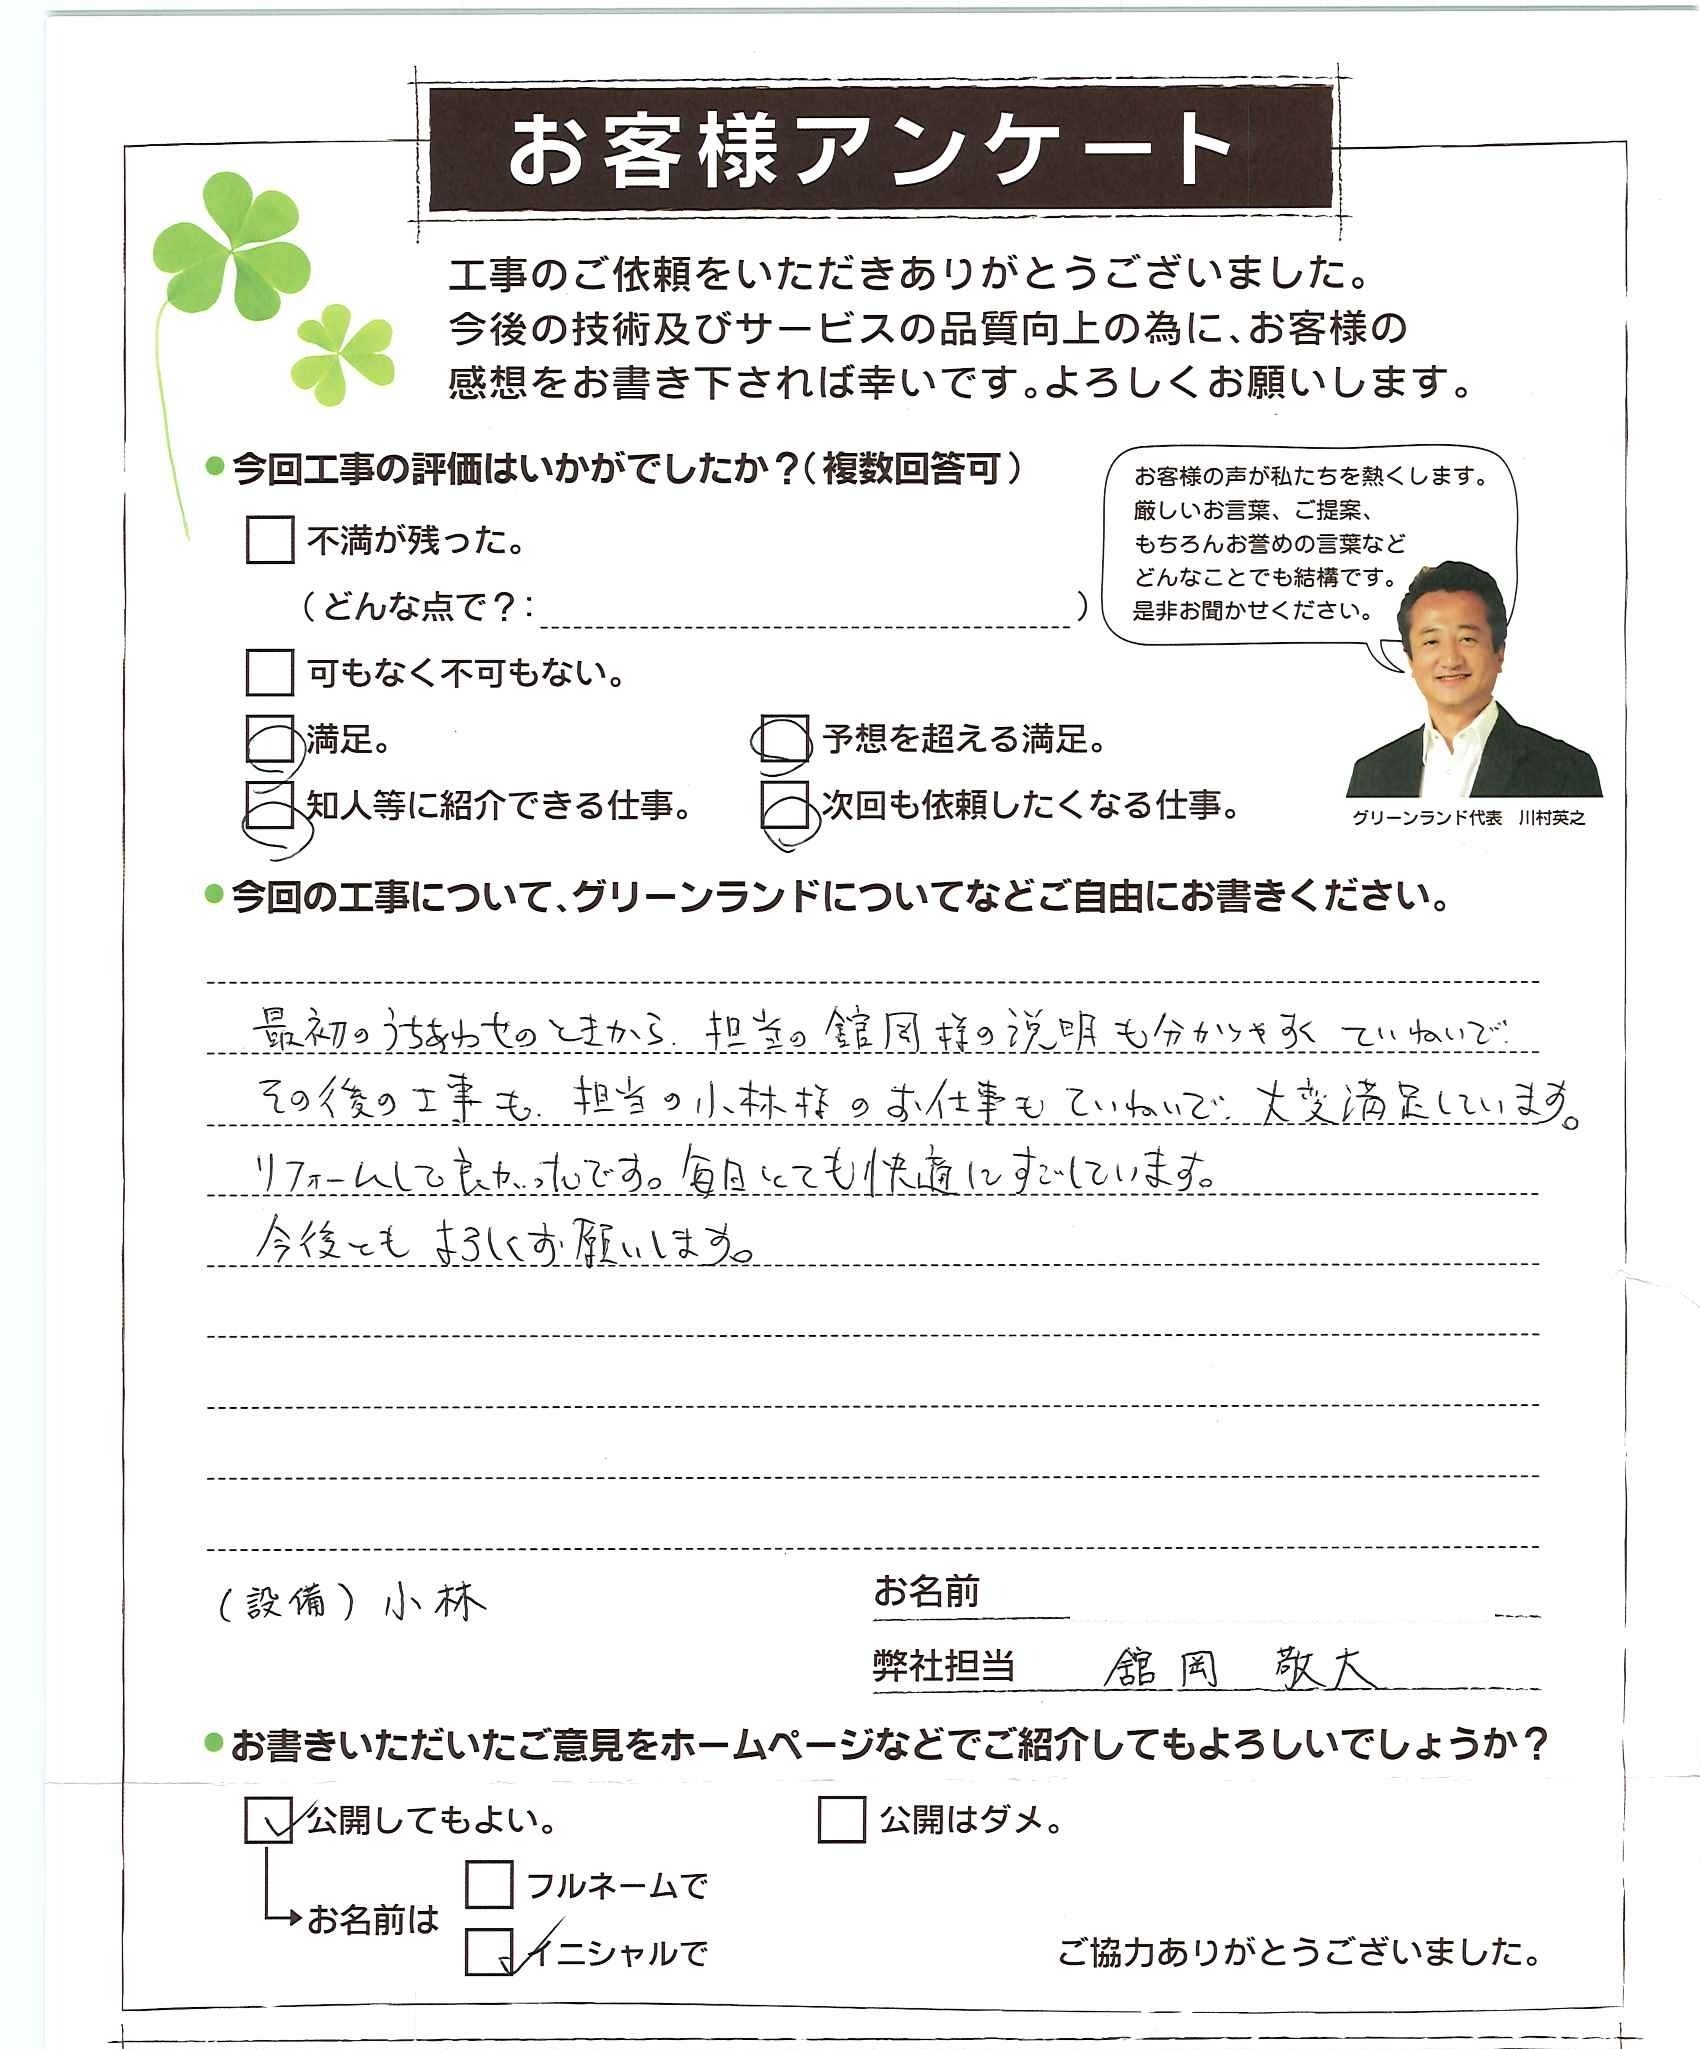 お客様アンケート
工事のご依頼をいただきありがとうございました。
今後の技術及びサービスの品質向上の為に、お客様の
感想をお書き下されば幸いです。よろしくお願いします。
●今回工事の評価はいかがでしたか?(複数回答可)
お客様の声が私たちを熱くします。
厳しいお言葉、ご提案、
もちろんお誉めの言葉など
どんなことでも結構です。
是非お聞かせください。
不満が残った。
(どんな点で?: )
可もなく不可もない。
満足。 予想を超える満足。
知人等に紹介できる仕事。 次回も依頼したくなる仕事。
グリーンランド代表 川村英之
●今回の工事について、グリーンランドについてなどご自由にお書きください。
最初のうちあわせのときから、担当の舘岡様の説明も分かりやすく ていねいで、
その後の工事も、担当の小林様のお仕事もていねいで、大変満足しています。
リフォームして良かったです。毎日とても快適にすごしています。
今後とも よろしくお願いします。
(設備) 小林
お名前
弊社担当 舘岡 敬大
●お書きいただいたご意見をホームページなどでご紹介してもよろしいでしょうか?
公開してもよい。 公開はダメ。
お名前は
フルネームで
イニシャルで
ご協力ありがとうございました。